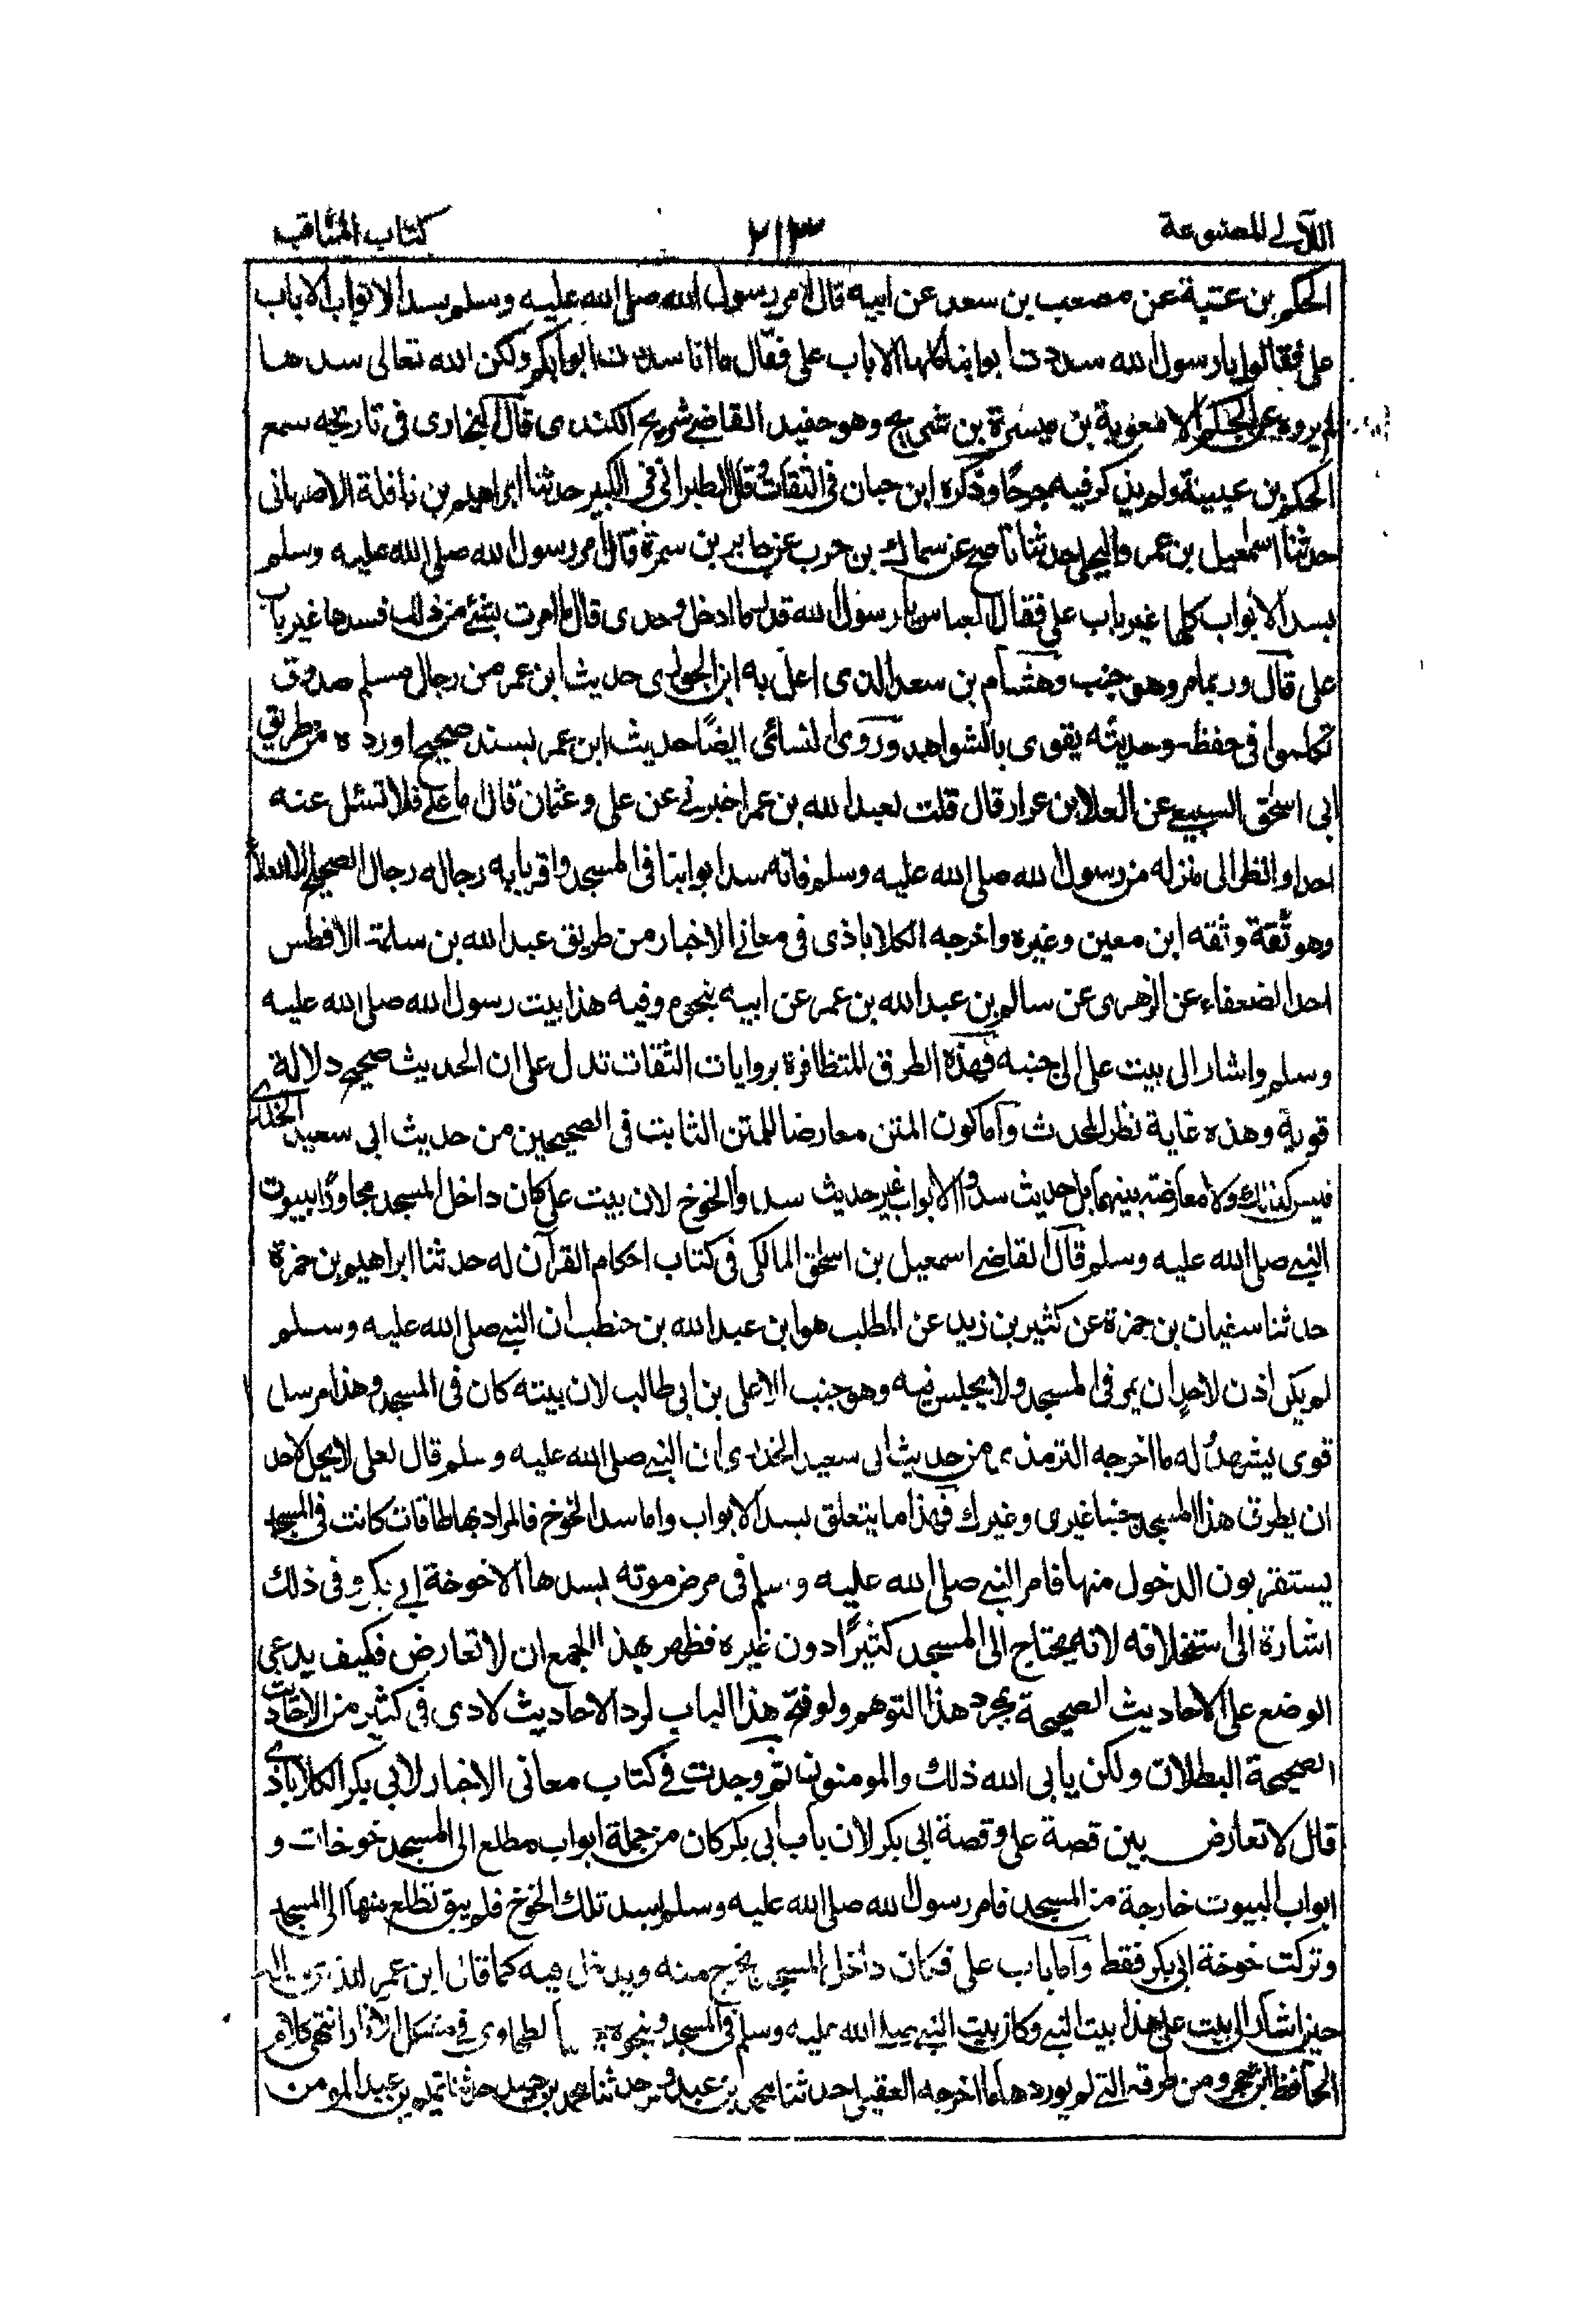 اللآلى المصنوعة ٢١٣ كتاب المناقب
الحكم بن عتبة عن مصعب بن سعد عن ابيه قال امر رسول الله صلى الله عليه وسلم بسد الابواب الا باب
على فقالوا يا رسول الله سددت ابوابنا كلها الا باب على فقال ما انا سددت ابوابكم ولكن الله تعالى سدها
لم يروه عن الحكم الا معوية بن ميسرة بن شريح وهو حفيد القاضى شريح الكندى قال البخارى فى تاريخه سمع
الحكم بن عيينة ولم يذكر فيه جرحًا وذكره ابن حبان فى الثقات وقال الطبرانى فى الكبير حدثنا ابراهيم بن نافلة الاصبهانى
حدثنا اسمعيل بن عمرو البجلى حدثنا ناصح عن سماك بن حرب عن جابر بن سمرة قال امر رسول الله صلى الله عليه وسلم
بسد الابواب كلها غير باب على فقال العباس يا رسول الله قدر ما ادخل وحدى قال ما امرت بشئ من ذلك فسدها غير باب
على قال وربما مر وهو جنب وهشام بن سعد الذى اعل به ابن الجوزى حديث ابن عمر من رجال مسلم صدوق
تكلموا فى حفظه وحديثه يقوى بالشواهد وروى النسائى ايضًا حديث ابن عمر بسند صحيح اورده من طريق
ابى اسحق السبيعى عن العلا بن عرار قال قلت لعبد الله بن عمر اخبرنى عن على وعثمان قال ما على فلا تسئل عنه
احدا وانظر الى منزله من رسول الله صلى الله عليه وسلم فانه سد ابوابنا فى المسجد واقر بابه رجاله رجال الصحيح الا العلا
وهو ثقة وثقه ابن معين وغيره واخرجه الكلاباذى فى معانى الاخبار من طريق عبد الله بن سلمة الافطس
احد الضعفاء عن الزهرى عن سالم بن عبد الله بن عمر عن ابيه بنحوه وفيه هذا بيت رسول الله صلى الله عليه
وسلم واشار الى بيت على الى جنبه فهذه الطرق المتظافرة بروايات الثقات تدل على ان الحديث صحيح دلالة
قوية وهذه غاية نظر المحدث واما كون المتن معارضا للمتن الثابت فى الصحيحين من حديث ابى سعيد الخدرى
فليس كذلك ولا معارضة بينهما بل حديث سدوا الابواب غير حديث سدوا الخوخ لان بيت على كان داخل المسجد مجاورًا بيوت
النبى صلى الله عليه وسلم قال القاضى اسمعيل بن اسحق المالكى فى كتاب احكام القرآن له حدثنا ابراهيم بن حمزة
حدثنا سفيان بن حمزة عن كثير بن زيد عن المطلب هو ابن عبد الله بن حنطب ان النبى صلى الله عليه وسلم
لم يكن اذن لاحد ان يمر فى المسجد ولا يجلس فيه وهو جنب الا على بن ابى طالب لان بيته كان فى المسجد وهذا مرسل
قوى يشهد له ما اخرجه الترمذى من حديث ابى سعيد الخدرى ان النبى صلى الله عليه وسلم قال لعلى لا يحل لاحد
ان يطرق هذا المسجد جنبا غيرى وغيرك فهذا ما يتعلق بسد الابواب واما سد الخوخ فالمراد بها طاقات كانت فى المسجد
يستقربون الدخول منها فامر النبى صلى الله عليه وسلم فى مرض موته بسدها الا خوخة ابى بكر وفى ذلك
اشارة الى استخلافه لانه يحتاج الى المسجد كثيرًا دون غيره فظهر بهذا الجمع ان لا تعارض فكيف يدعى
الوضع على الاحاديث الصحيحة بمجرد هذا التوهم ولو فتح هذا الباب لرد الاحاديث لادى فى كثير من الاحاديث
الصحيحة البطلان ولكن يابى الله ذلك والمومنون ثم وجدت فى كتاب معانى الاخبار لابى بكر الكلاباذى
قال لا تعارض بين قصة على وقصة ابى بكر لان باب ابى بكر كان من جملة ابواب مطلع الى المسجد خوخات و
ابواب البيوت خارجة من المسجد فامر رسول الله صلى الله عليه وسلم بسد تلك الخوخ فلم يبق تطلع منها الى المسجد
وتركت خوخة ابى بكر فقط واما باب على فكان داخل المسجد يخرج منه ويدخل فيه كما قال ابن عمر
حين اشار الى بيت على هذا بيت النبى وكان بيت النبى صلى الله عليه وسلم فى المسجد ونحوه الطحاوى فى مشكل الاثار انتهى كلام
الحافظ ابن حجر ومن طرقه التى لم يوردها ما اخرجه العقيلى حدثنا محمد بن عبدوس حدثنا محمد بن حميد حدثنا تميم بن عبد المومن